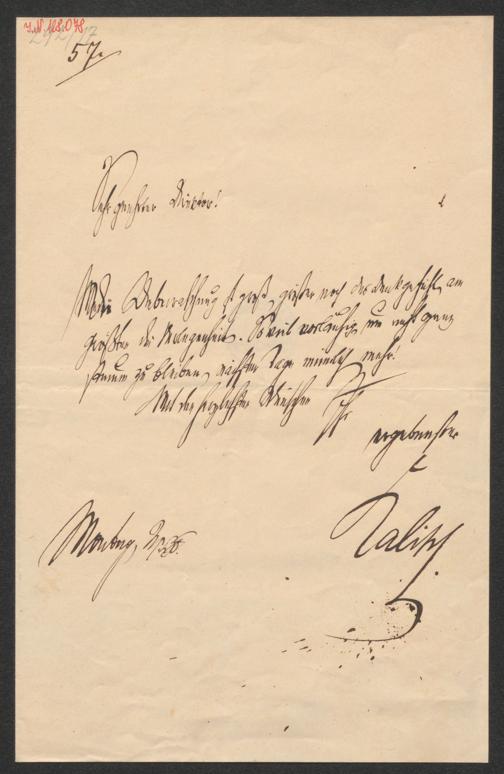 J.N. 128.078
57.
Sehr geehrter Direktor!
Meine Ueberraschung ist groß, größer noch das Dankgefühl, am
größten die Verlegenheit. Soviel vorläufig, um nicht ganz
stumm zu bleiben, nächster Tage mündl. mehr.
Mit den herzlichsten Wünschen
Ihr
ergebenster
Kalisch
Montag,